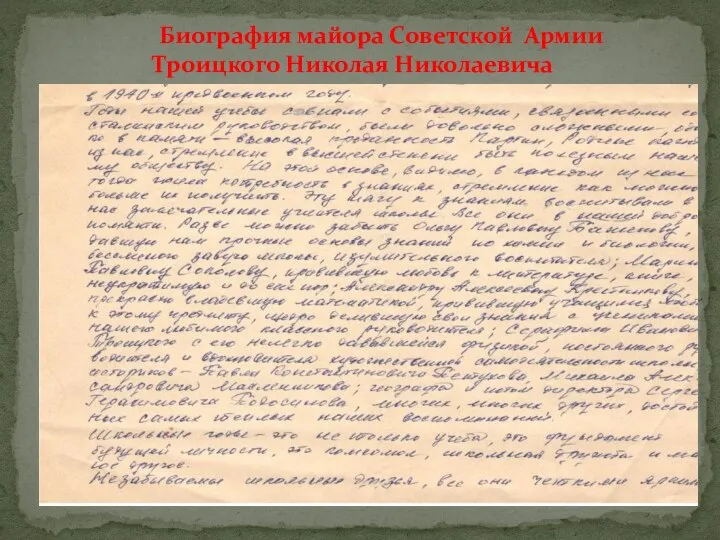 Биография майора Советской Армии
Троицкого Николая Николаевича
в 1940м предвоенном году.
Годы нашей учебы совпали с событиями, связанными со
сталинским руководством, были довольно сложными, но
в памяти - высокая преданность Партии, Родине
из нас, стремление в высшей степени быть полезным наше
му обществу. На этой основе, видимо, в каждом из нас
тогда жила потребность в знаниях, стремление как можно
больше их получить. Эту тягу к знаниям воспитывали в
нас замечательные учителя школы. Все они в нашей доброй
памяти. Разве можно забыть Ольгу Павловну
давшую нам прочные основы знаний по химии и биологии,
бессменного завуча школы, изумительного воспитателя; Марию
Павловну Соколову, прививавшую любовь к литературе, книге,
до сих пор; Александру Алексеевну
прекрасно владевшую математикой, прививавшую учащимся
к этому предмету, щедро делившую свои знания с учениками
нашего любимого классного руководителя; Серафима Иванови
Троицкого с его нелегко дававшейся физикой, постоянного ру
водителя и вдохновителя художественной самодеятельности школы
историков - Павла Константиновича Петухова, Михаила Алек
сандровича Масленникова; географа и потом директора Серге
Герасимовича многих, многих других, достой
ных самых теплых наших воспоминаний.
Школьные годы - это не только учеба, это фундамент
будущей личности, это комсомол, школьная дружба и мно
друзов.
Незабываемы школьные друзья, все они четкими